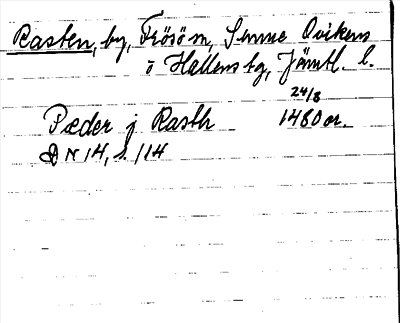 Rasten, by, Frösö m, Sunne Ovikens
o Hallens tg, Jämtl. l.
24/8
Pæder j Rasth 1480 or.
DN 14, s. 114